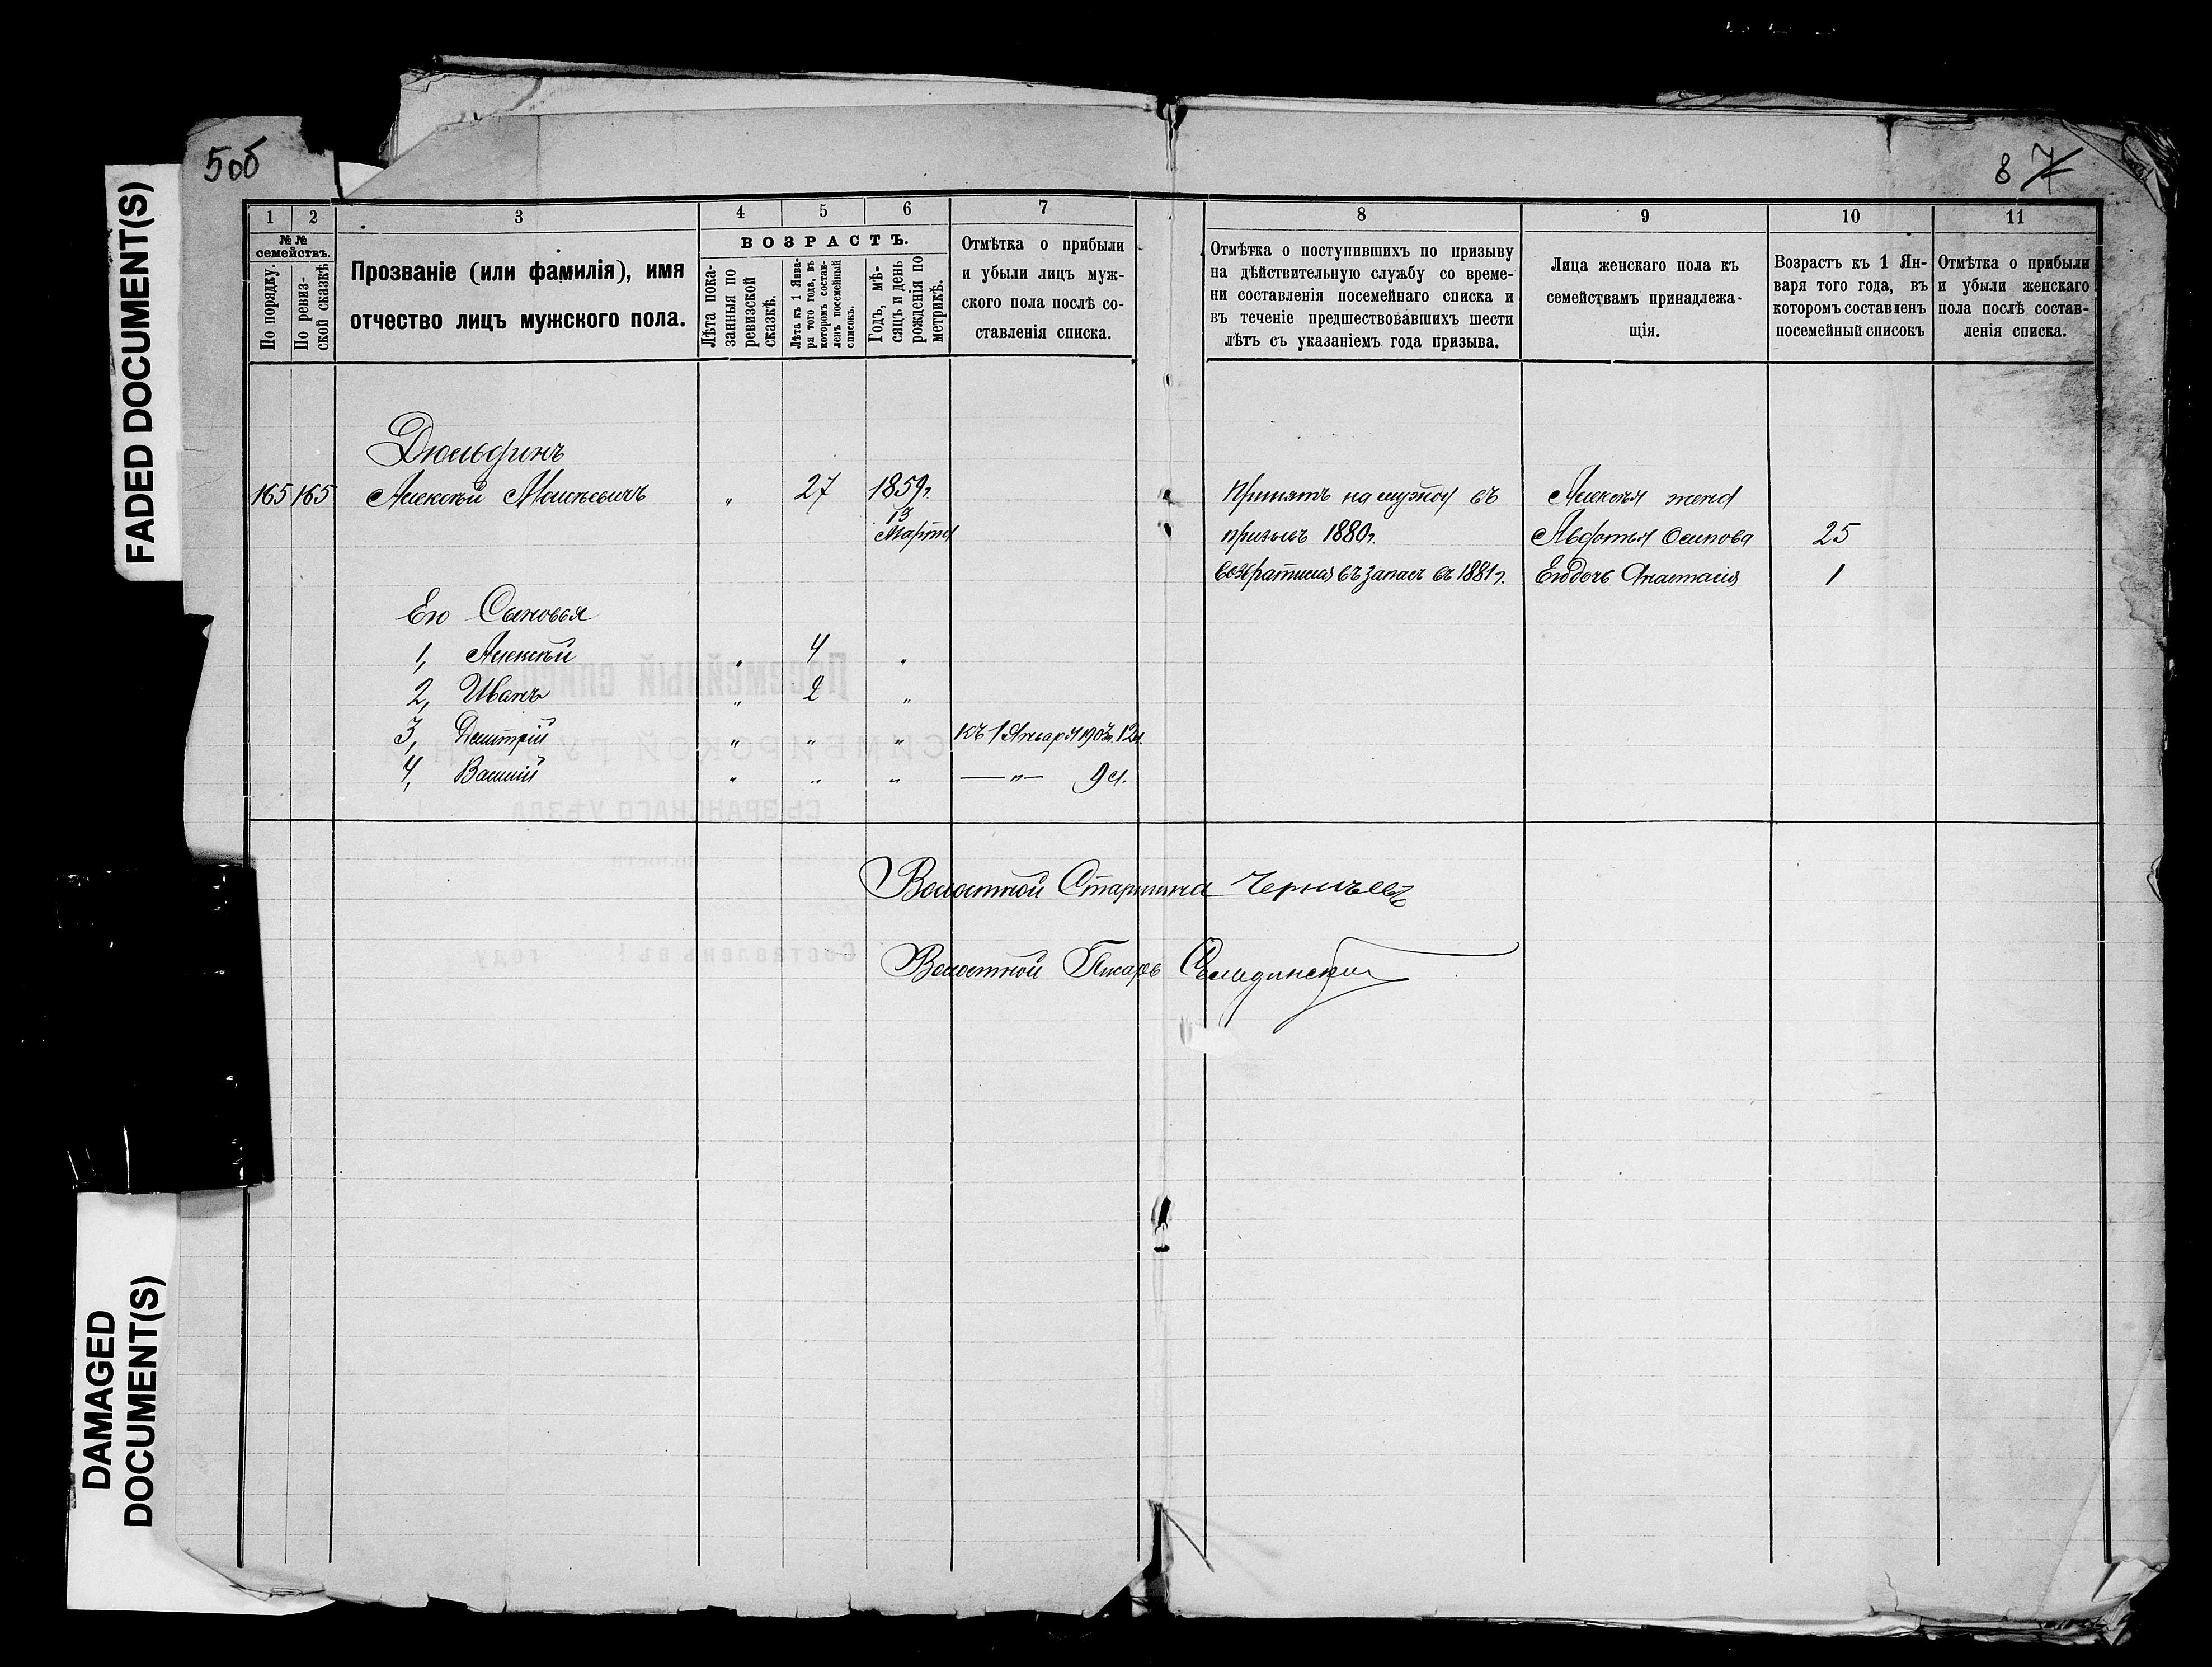 FADED DOCUMENT(S)
DAMAGED
DOCUMENT(S)
5об
8 7
1 2 3 4 5 6 7 8 9 10 11
№№
семействъ.
По порядку.
По ревиз-
ской сказкѣ
Прозваніе (или фамилія), имя
отчество лицъ мужского пола.
ВОЗРАСТЪ.
Лѣта пока-
занныя по
ревизской
сказкѣ.
Лѣта къ 1 Янва-
ря того года, въ
которомъ состав-
ленъ посемейный
списокъ.
Годъ, мѣ-
сяцъ и день
рожденія по
метрикѣ.
Отмѣтка о прибыли
и убыли лицъ муж-
ского пола послѣ со-
ставленія списка.
Отмѣтка о поступившихъ по призыву
на дѣйствительную службу со време-
ни составленія посемейнаго списка и
въ теченіе предшествовавшихъ шести
лѣтъ съ указаніемъ года призыва.
Лица женскаго пола къ
семействамъ принадлежа-
щія.
Возрастъ къ 1 Ян-
варя того года, въ
которомъ составленъ
посемейный списокъ
Отмѣтка о прибыли
и убыли женскаго
пола послѣ состав-
ленія списка.
Дюльдинъ
165 165 Алексѣй Моисѣевичъ " 27 1859г. Принятъ на службу въ Алексѣя жена
13
Марта призывъ 1880г. Авдотья Осипова 25
возвратился въ запасъ въ 1881г. Его дочь Анастасія 1
Его Сыновья
1, Алексѣй " 4 "
2, Иванъ " 2 "
3, Дмитрій " " " къ 1 Января 1903г. 12л.
4, Василій " " " —"— 9л.
Волостной Старшина
Волостной Писарь
Посемейный списокъ
СИМБИРСКОЙ ГУБЕРНІИ
СЫЗРАНСКАГО УѢЗДА
Составленъ въ 1 году